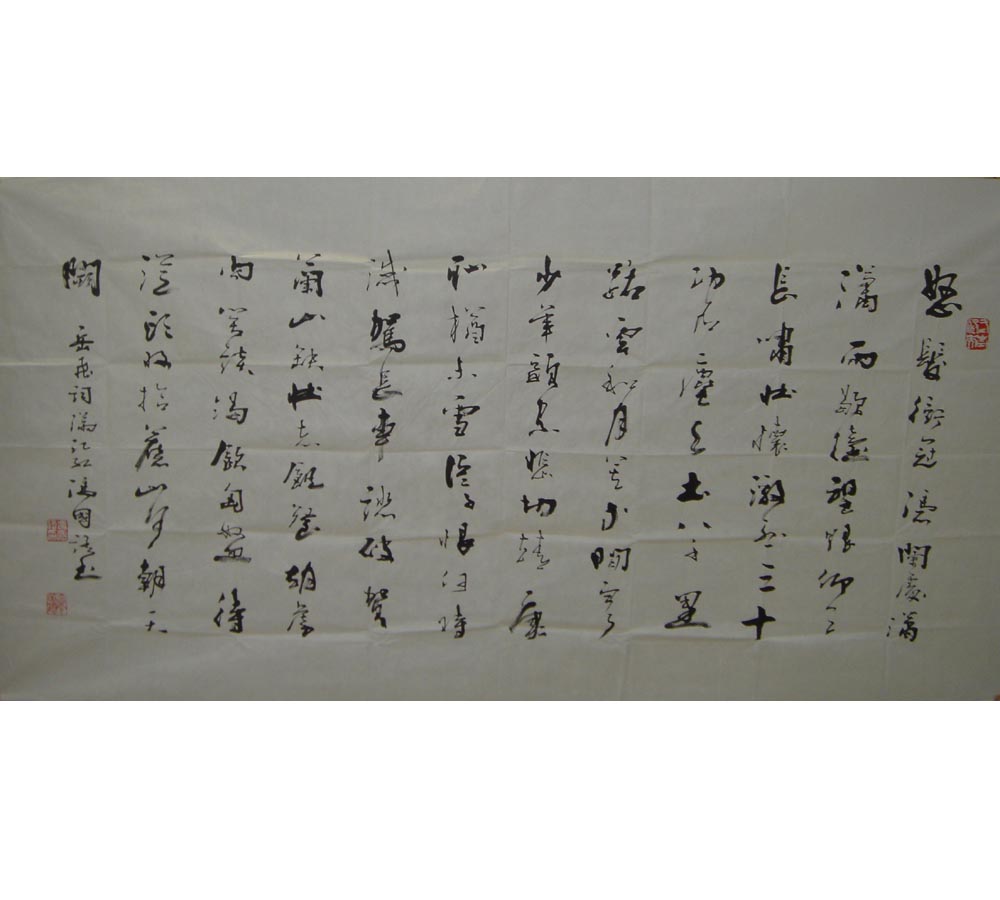 怒髮衝冠憑闌處瀟
瀟雨歇擡望眼仰天
長嘯壯懷激烈三十
功名塵與土八千里
路雲和月莫等閒白了
少年頭空悲切靖康
恥猶未雪臣子恨何時
滅駕長車踏破賀
蘭山缺壯志飢餐胡虜
肉笑談渴飲匈奴血待
從頭收拾舊山河朝天
闕 岳飛詞滿江紅 馮國